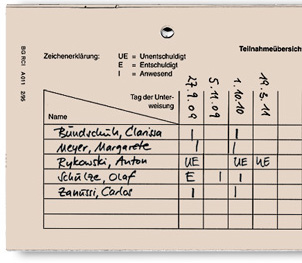 Teilnahmeübersicht
Zeichenerklärung: UE = Unentschuldigt
E = Entschuldigt
I = Anwesend
BG RCI A 011 2/95
Tag der Unter-
weisung
27.9.09 5.11.09 1.10.10 19.5.11
Name
Bundschuh, Clarissa I I
Meyer, Margarete I I
Rykowski, Anton UE UE UE
Schulze, Olaf E I I
Zanussi, Carlos I I